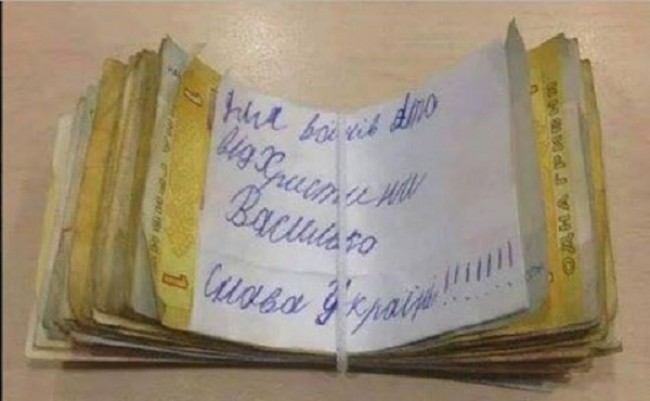 для воїнів АТО
від Христини
Василько
Слава Україні!!!!!!!
1
ОДНА ГРИВНЯ